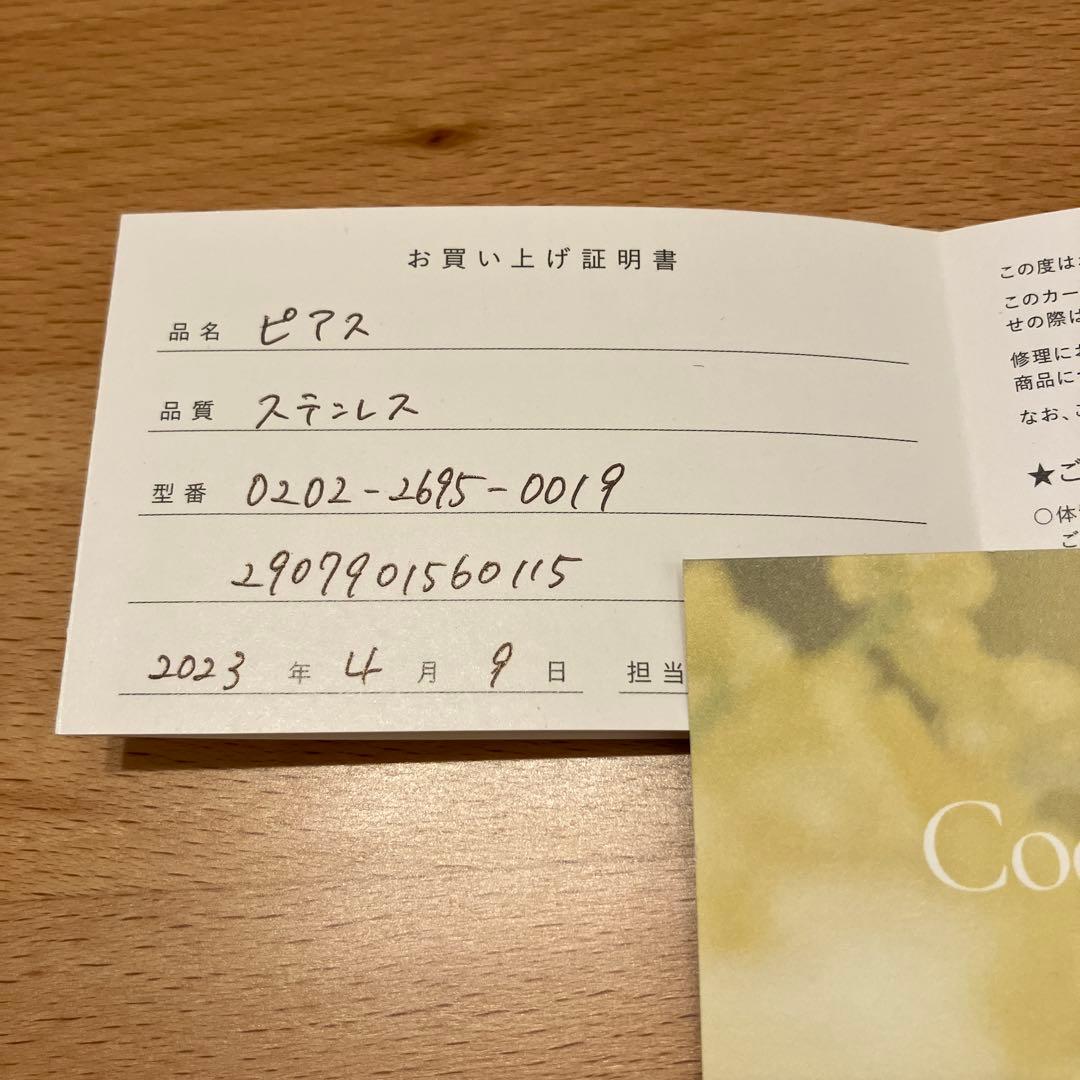 お買い上げ証明書
品名 ピアス
品質 ステンレス
型番 0202-2695-0019
2907901560115
2023 年 4 月 9 日 担当
この度は
このカー
せの際は
修理に
商品に
なお、
★ご
○体
ご
Coc